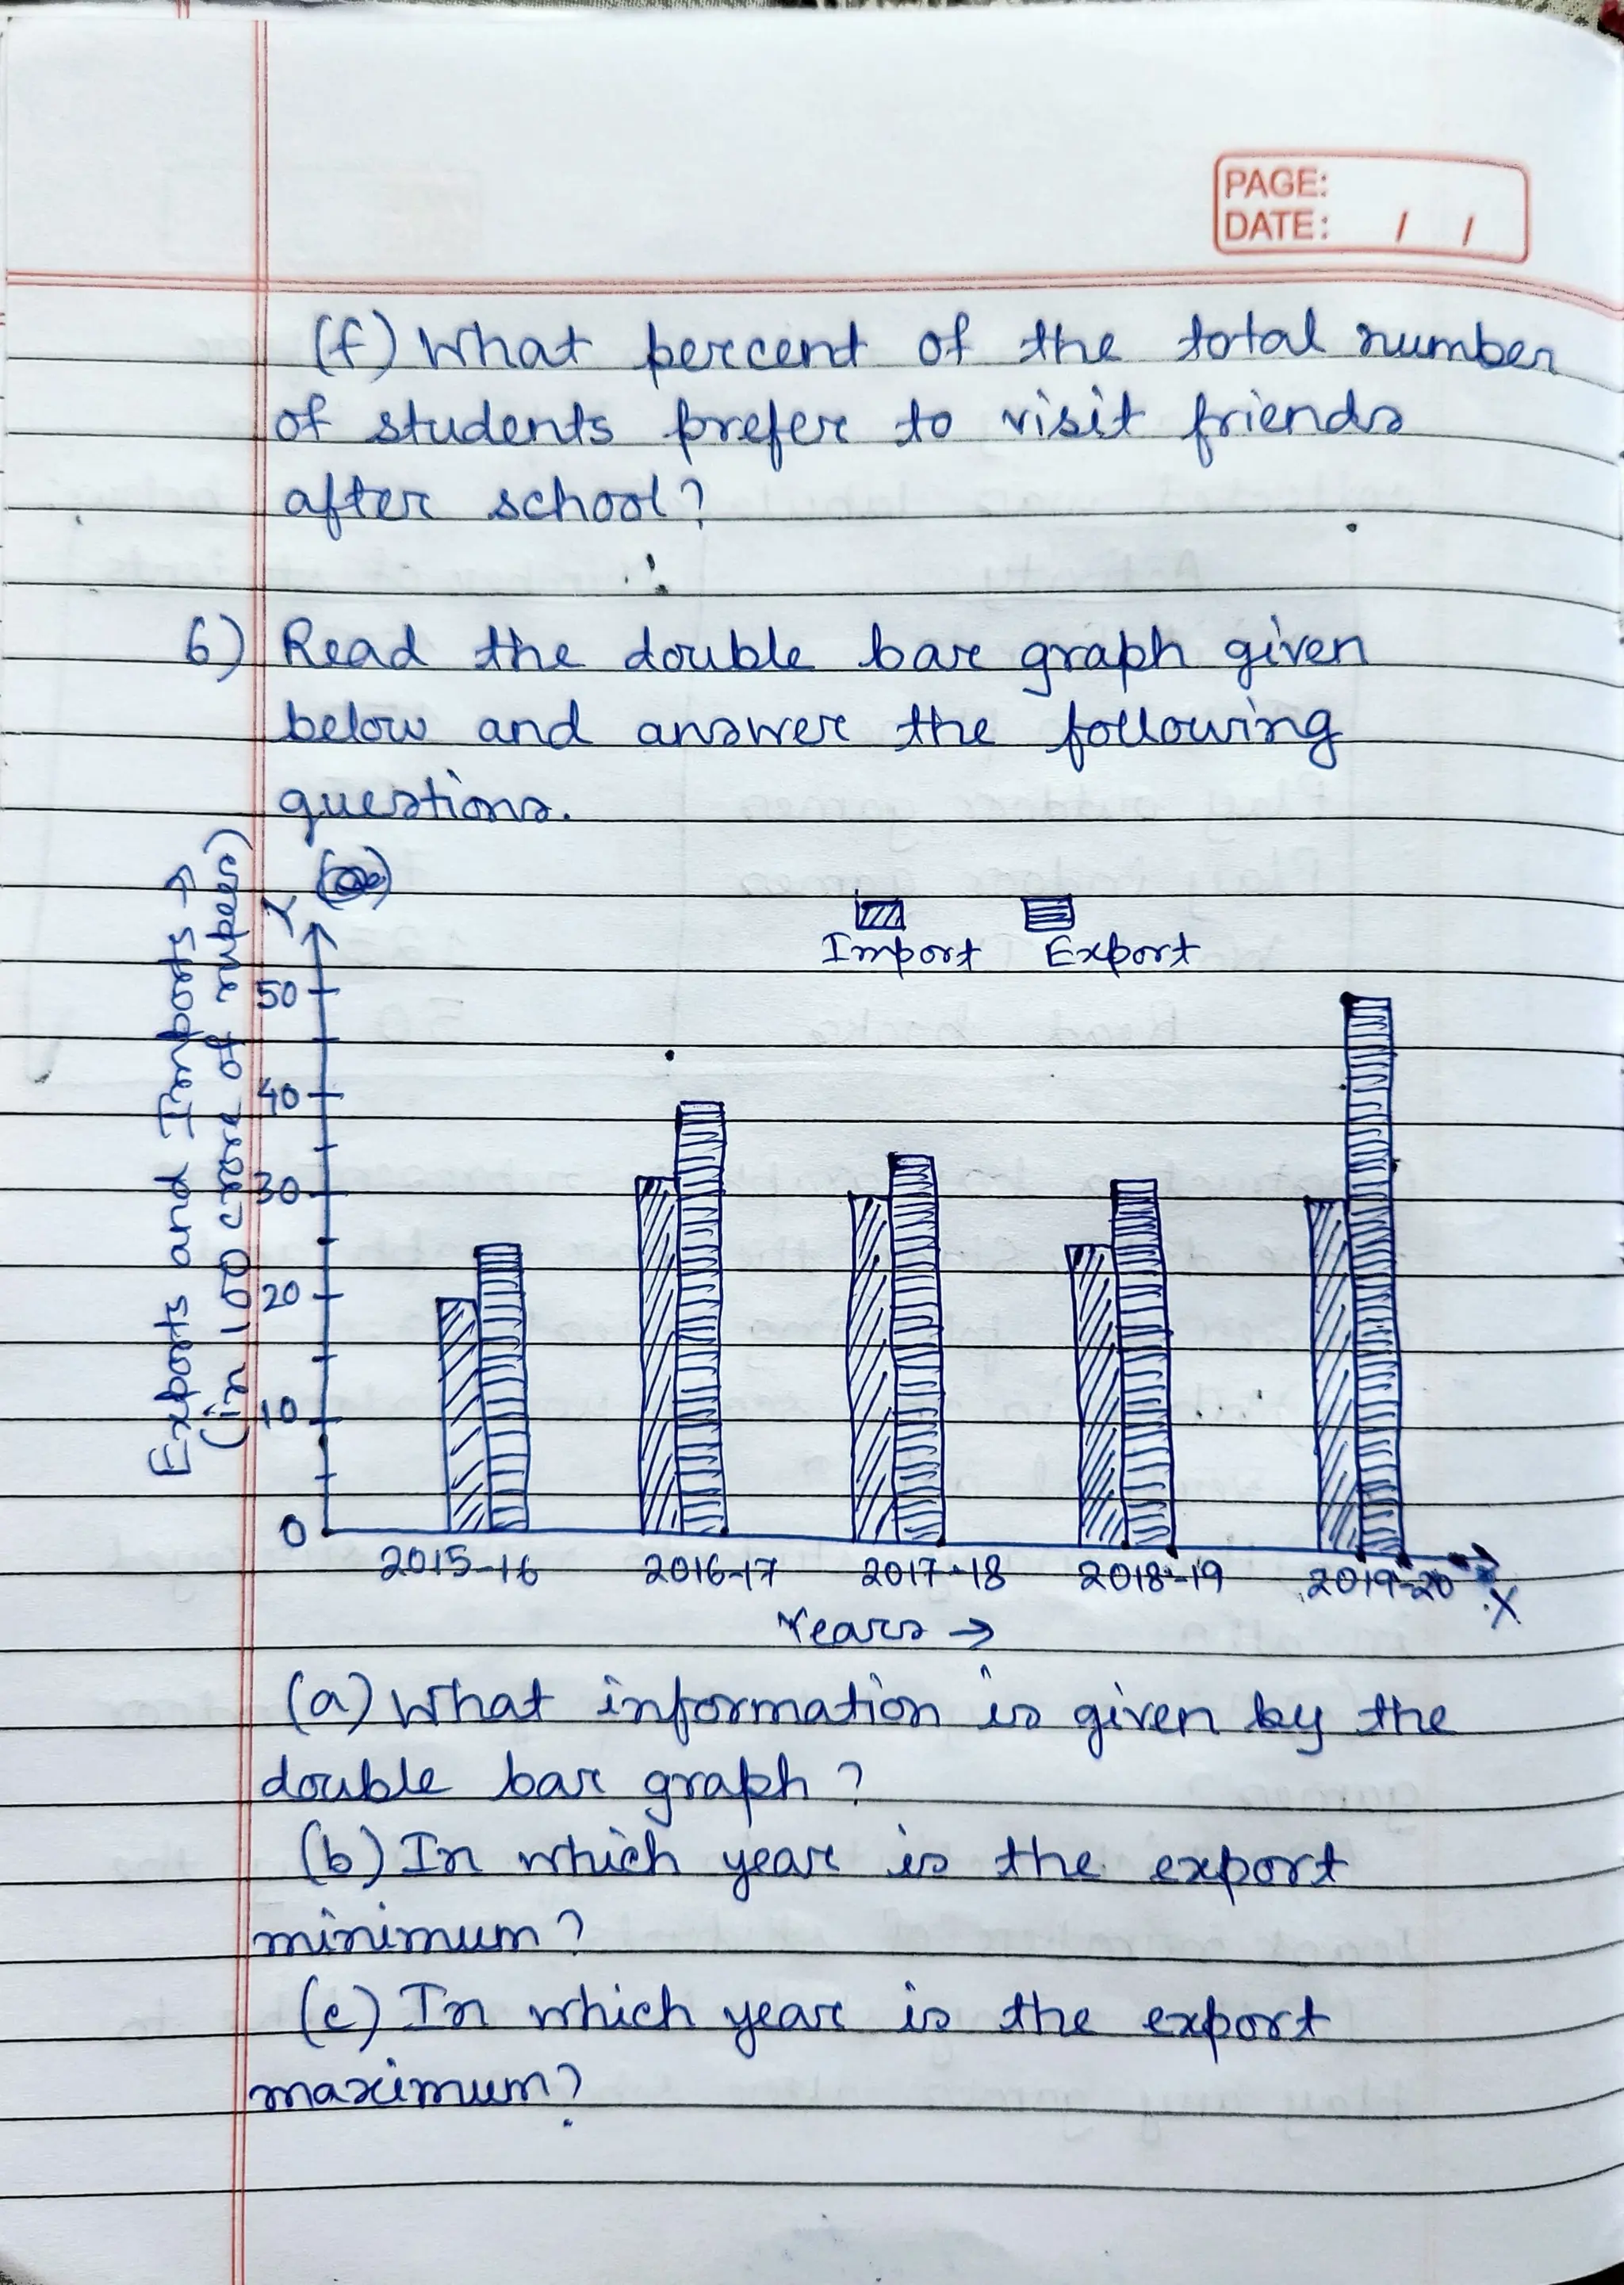 PAGE:
DATE: / /
(f) What percent of the total number
of students prefer to visit friends
after school?
6) Read the double bar graph given
below and answer the following
questions.
Import Export
Exports and Imports →
(in 100 crore of rupees)
Y
50
40
30
20
10
0
2015-16 2016-17 2017-18 2018-19 2019-20
X
Years →
(a) What information is given by the
double bar graph?
(b) In which year is the export
minimum?
(c) In which year is the export
maximum?